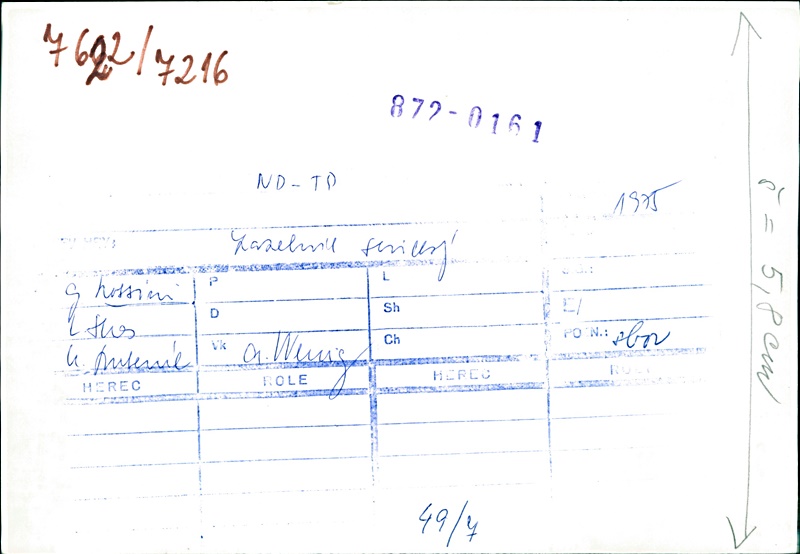 7622/7216
872-0161
ND-TD
1975
Lazebník sevillský
G Rossini
P
L
D
Sh
E/
Vk A. Wenig
Ch
POZN.: sbor
HEREC ROLE HEREC
49/7
š = 5,8 cm